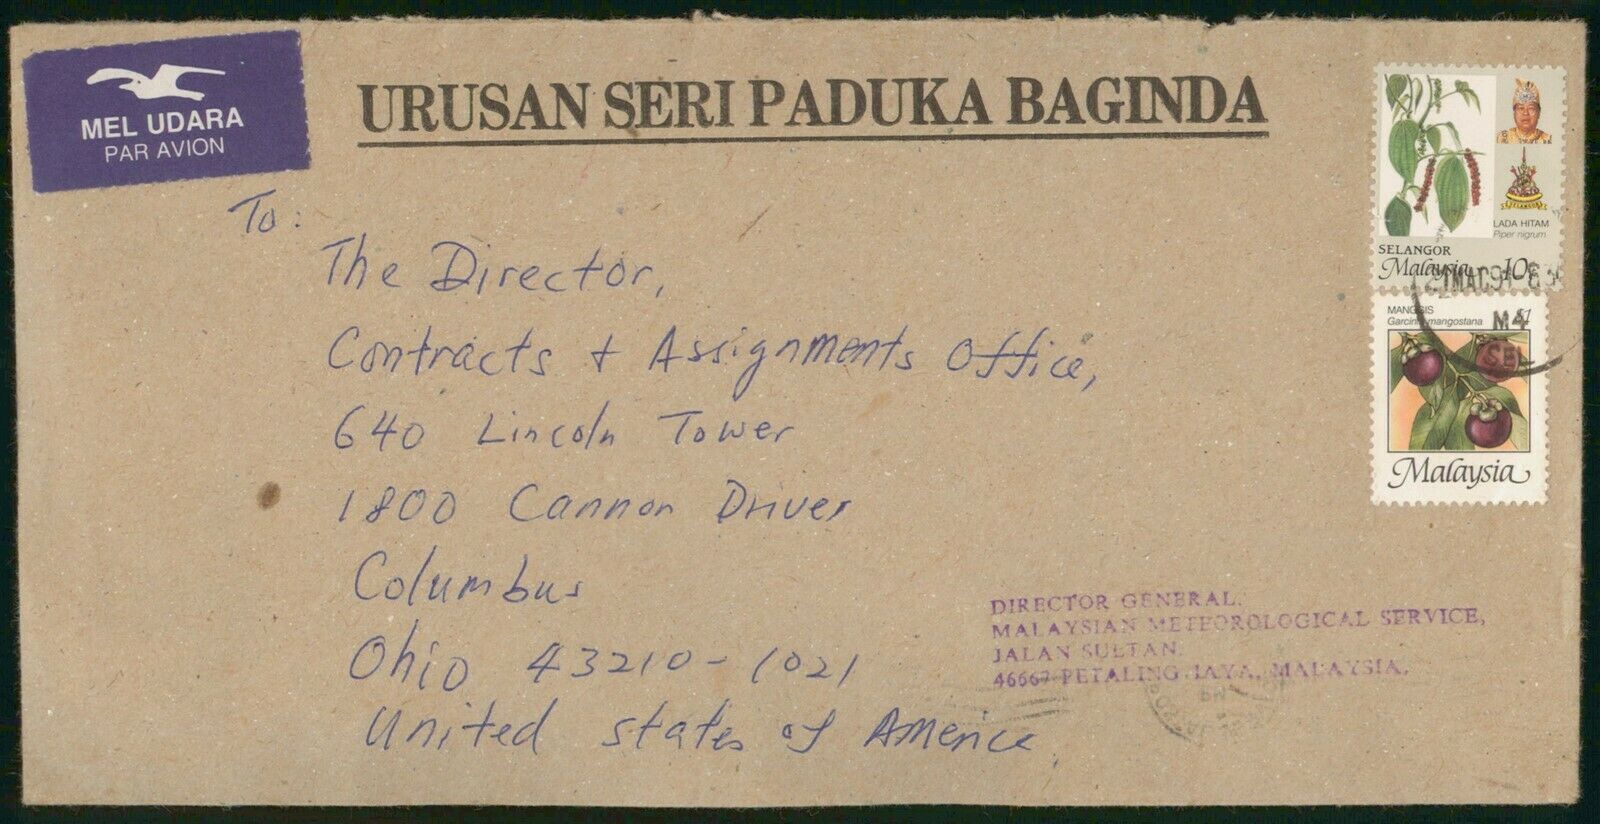 MEL UDARA
PAR AVION
URUSAN SERI PADUKA BAGINDA
To:
The Director,
Contracts + Assignments Office,
640 Lincoln Tower
1800 Cannon Driver
Columbus
Ohio 43210-1021
United States of America
SELANGOR
LADA HITAM
Piper nigrum
SELANGOR
Malaysia 10¢
MAC
MANGGIS $1
Garcinia mangostana
M4
SEL
Malaysia
DIRECTOR GENERAL.
MALAYSIAN METEOROLOGICAL SERVICE,
JALAN SULTAN.
46667 PETALING JAYA, MALAYSIA.